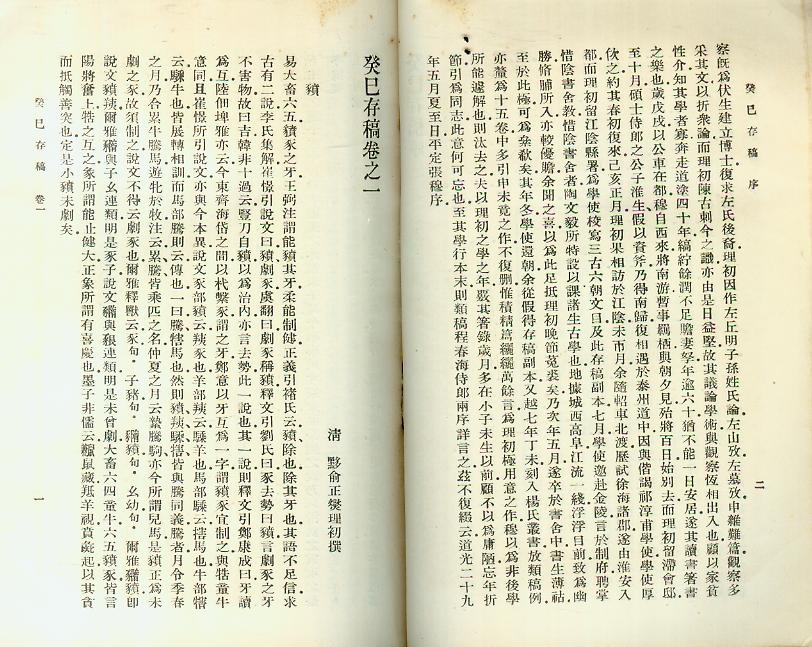 癸巳存稿 序
二
察旣爲伏生建立博士復求左氏後裔理初因作左丘明子孫姓氏論左山攷左墓攷申雜難篇觀察多
采其文以折衆論而理初陳古刺今之譏亦由是日益堅故其議論學術與觀察恆相出入也顧以家貧
性介知其學者寡奔走道塗四十年縞紵餘潤不足贍妻孥年逾六十猶不能一日安居遂其讀書箸書
之樂也歲戊戌以公車在都穆自西來將南游暫事羈棲與朝夕見殆將百日始別去而理初留滯會邸
至十月碩士侍郎之公子淮生假以資斧乃得南歸復相遇於泰州道中因與偕謁祁淳甫學使學使厚
佽之約其春初復來己亥正月理初果相訪於江陰未市月余隨軺車北渡歷試徐海諸郡遂由淮安入
都而理初留江陰縣署爲學使校寫三古六朝文目及此存稿副本七月學使邀赴金陵言於制府聘掌
惜陰書舍教惜陰書舍者陶文毅所特設以課諸生古學也地據城西高阜江流一綫浮浮目前致爲幽
勝脩脯所入亦較優贍余聞之喜以爲此足抵理初晚節菟裘矣乃次年五月遽卒於書舍中書生薄祜
至於此極可爲絫欷矣其年冬學使還朝余從假得存稿副本又越七年丁未刻入楊氏叢書放類稿例
亦釐爲十五卷中多引申未竟之作不復刪惟積精篇纚纚萬餘言爲理初極用意之作穆以爲非後學
所能遽解也則汰去之夫以理初之學之年覈其箸錄歲月多在小子未生以前顧不以爲庸陋忘年折
節引爲同志此意何可忘也至其學行本末則類稿程春海侍郎兩序詳言之茲不復綴云道光二十九
年五月夏至日平定張穆序
癸巳存稿卷之一
清 黟俞正燮理初撰
豶
易大畜六五豶豕之牙王弼注謂能豶其牙柔能制健正義引褚氏云豶除也除其牙也其語不足信求
古有二說李氏集解崔憬引說文曰豶劇豕虞翻曰劇豕稱豶釋文引劉氏曰豕去勢曰豶言劇豕之牙
不害物故曰吉韓非十過云豎刀自豶以爲治內亦言去勢此一說也其一說則釋文引鄭康成曰牙讀
爲互陸佃埤雅亦云今東齊海岱之間以杙繫豕謂之牙鄭意以牙互爲一字謂豶豕宜制之與牿童牛
意同且崔憬所引說文亦與今本異說文豕部豶云羠豕也羊部羠云騬羊也馬部騬云犗馬也牛部犗
云騬牛也皆展轉相訓而馬部騰則云傳也一曰騰犗馬也然則豶羠騬犗皆與騰同義騰者月令季春
之月乃合累牛騰馬遊牝於牧注云累騰皆乘匹之名仲夏之月云縶騰駒亦今所謂兒馬是豶正爲未
劇之豕故須制之說文不得云劇豕也爾雅釋獸云豕句子豬句䝐豶句幺幼句爾雅䝐豶卽
說文豶羠爾雅䝐與子幺連類明是豕子說文䝐與豤連類明是未曾劇大畜六四童牛六五豶豕皆言
陽將奮上牿之互之象所謂能止健大正象所謂有喜慶也墨子非儒云鼸鼠藏羝羊視賁彘起以其賁
而抵觸善突也定是小豶未劇矣
癸巳存稿 卷一
一